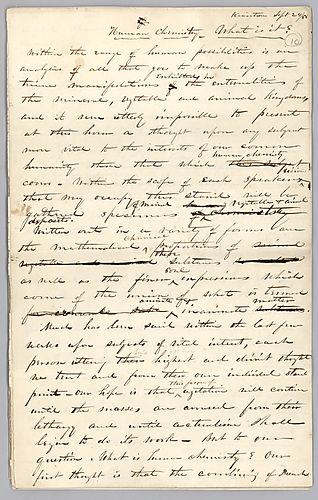 Kineton Sept 24/58
10
Human Chemistry – What is it?
Within the range of human possibilities is an
analysis of all that goes to make up the
trine manifestations exhibited in the externalities of
the mineral, vegetable and animal kingdoms,
and it seems utterly impossible to present
at this hour a thought upon any subject
more vital to the interests of our common
humanity than that which human chemistry
covers. Within the safe of each speaker
that may occupy this stand will be
gathered specimens of mineral vegetable &
deposits.
Written out in a variety of forms are
the mathematical & chemical properties of
these substances
as well as the finer soul expressions which
come of the union of what is termed
animate & inanimate matter
Much has been said within the last few
weeks upon subjects of vital interest, each
person uttering their highest and divinest thought
we trust and from their own individual stand
point – Our hope is that this form of agitation will continue
until the masses are aroused from their
lethargy and until action shall
begin to do its work – But to our
question. What is human chemistry? Our
first thought is that the combining of